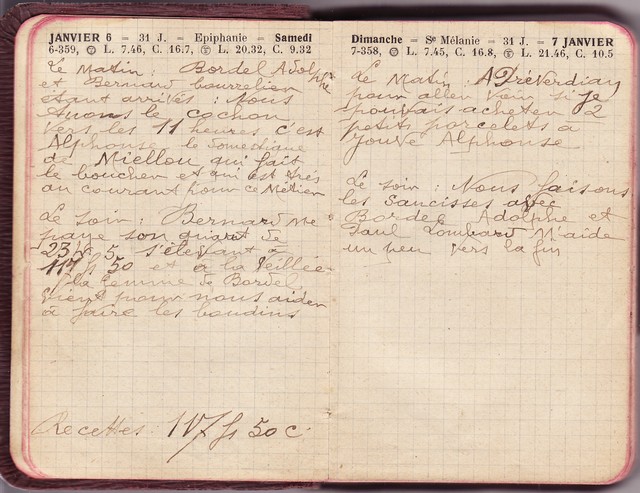 JANVIER 6 — 31 J. — Epiphanie — Samedi
6-359, L. 7.46, C. 16.7, L. 20.32, C. 9.32
Le Matin : Bordel Adolphe
et Bernard bourrelier
étant arrivés : Nous
tuons le cochon
vers les 11 heures c'est
Alphonse le domestique
de Miellou qui fait
le boucher et qui est très
au courant pour ce Métier
Le soir : Bernard me
paye son quart de
s'élevant à
117 fs 50 et à la Veillée
la femme de Bordel
vient pour nous aider
à faire les boudins
Recettes : 117 fs 50 c.
Dimanche — Se Mélanie — 31 J. — 7 JANVIER
7-358, L. 7.45, C. 16.8, L. 21.46, C. 10.5
Le Matin :
pour aller voir si je
pouvais acheter 2
petits porcelets à
Jouve Alphonse
Le soir : Nous faisons
les saucisses avec
Bordel Adolphe et
Paul Lombard m'aide
un peu vers la fin